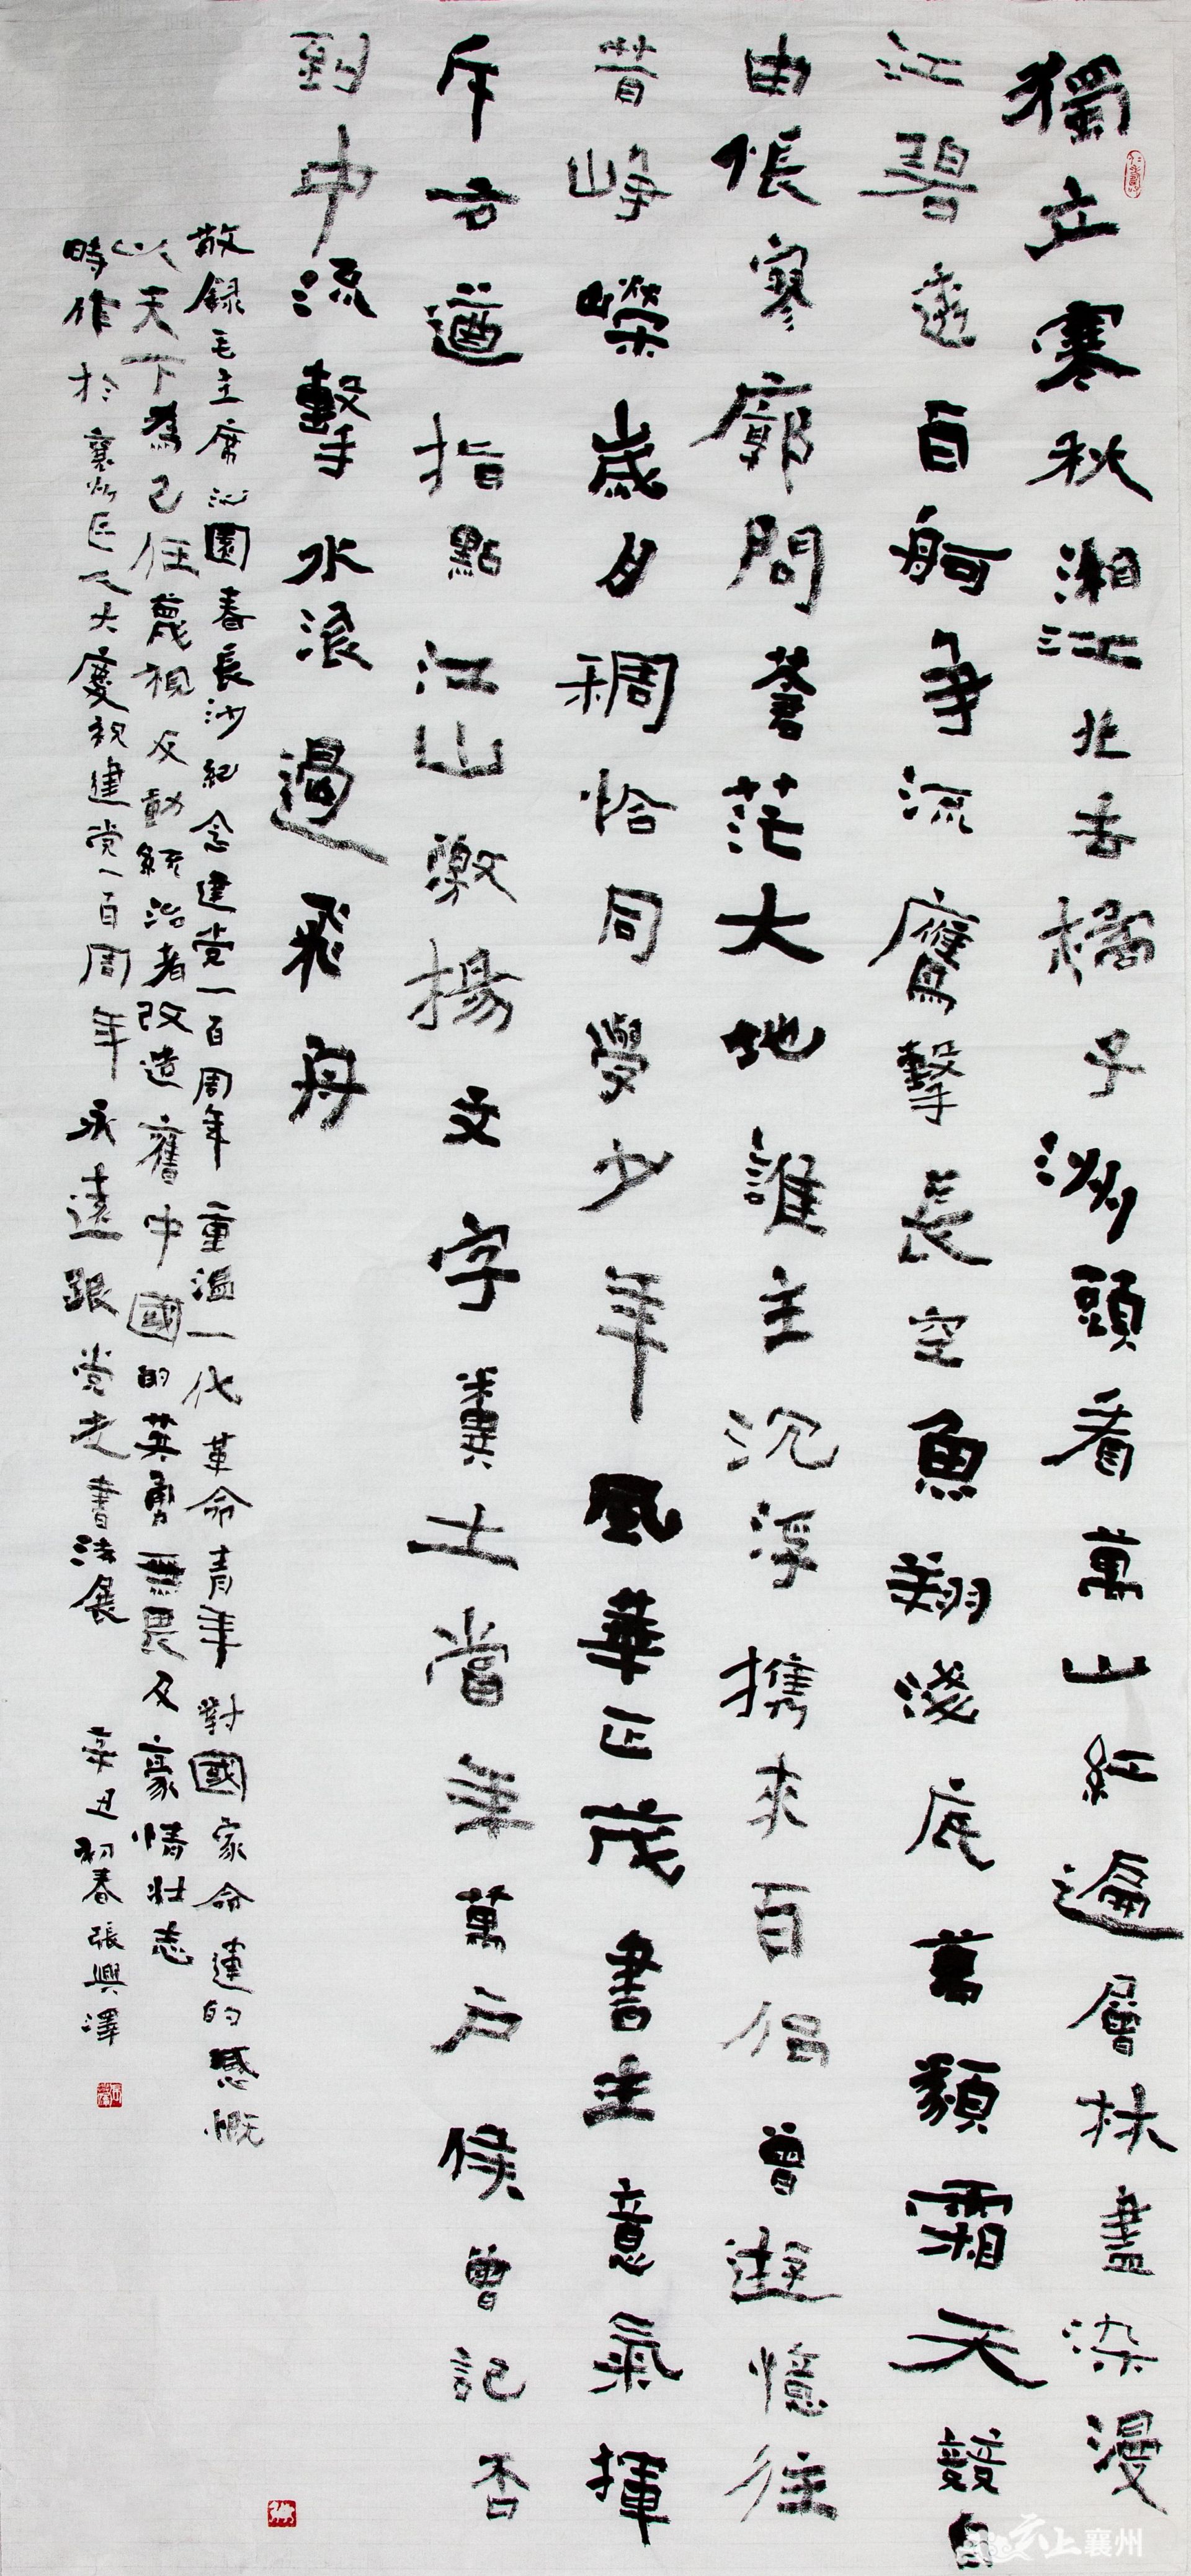 獨立寒秋湘江北去橘子洲頭看萬山紅遍層林盡染漫
江碧透百舸爭流鷹擊長空魚翔淺底萬類霜天競自
由悵寥廓問蒼茫大地誰主沉浮携來百侶曾遊憶往
昔崢嶸歲月稠恰同學少年風華正茂書生意氣揮
斥方遒指點江山激揚文字糞土當年萬戶侯曾記否
到中流擊水浪遏飛舟
敬録毛主席沁園春長沙紀念建党一百周年重温一代革命青年對國家命運的感慨
以天下為己任蔑視反動統治者改造舊中國的英勇無畏及豪情壯志
時作於襄州区人大慶祝建党一百周年永遠跟党走書法展 辛丑初春張興澤
云上襄州